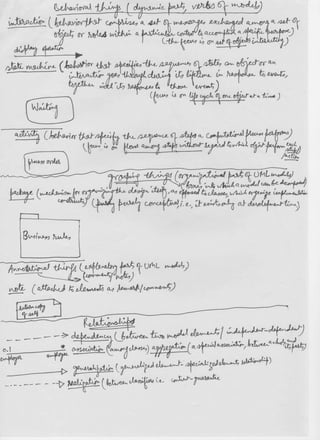 Behavioral things (dynamic parts, verbs of models)
interaction (behavior that comprises a set of messages exchanged among a set of
object or roles within a particular context to accomplish a specific purpose)
(the focus is on set of objects interacting)
display operation
state machine (behavior that specifies the sequences of states an object or an
interaction goes through during its lifetime in response to events,
together with its responses to those events)
(focus is on life cycle of one object at a time)
Waiting
activity (behavior that specify the sequence of steps a computational process performs)
(focus is on flow among steps without regard to which object performs each step)
action
process order
grouping things (organizational parts of UML models)
boxes into which a model can be decomposed
package (mechanism for organizing the design itself, as opposed to classes, which organize implementation
constructs) (purely conceptual; i.e., it exists only at development time)
Business rules
Annotational things (explanatory parts of UML models)
(comments/notes)
note (attached to elements as remark/comments)
return copy
of self
Relationships
dependency (between two model elements / independent-dependent)
0..1 * association (among classes) aggregation (a special association, between whole and its parts)
employer employee
generalization (generalized element - specialized element relationship)
realization (between classifiers i.e. contract-guarantee